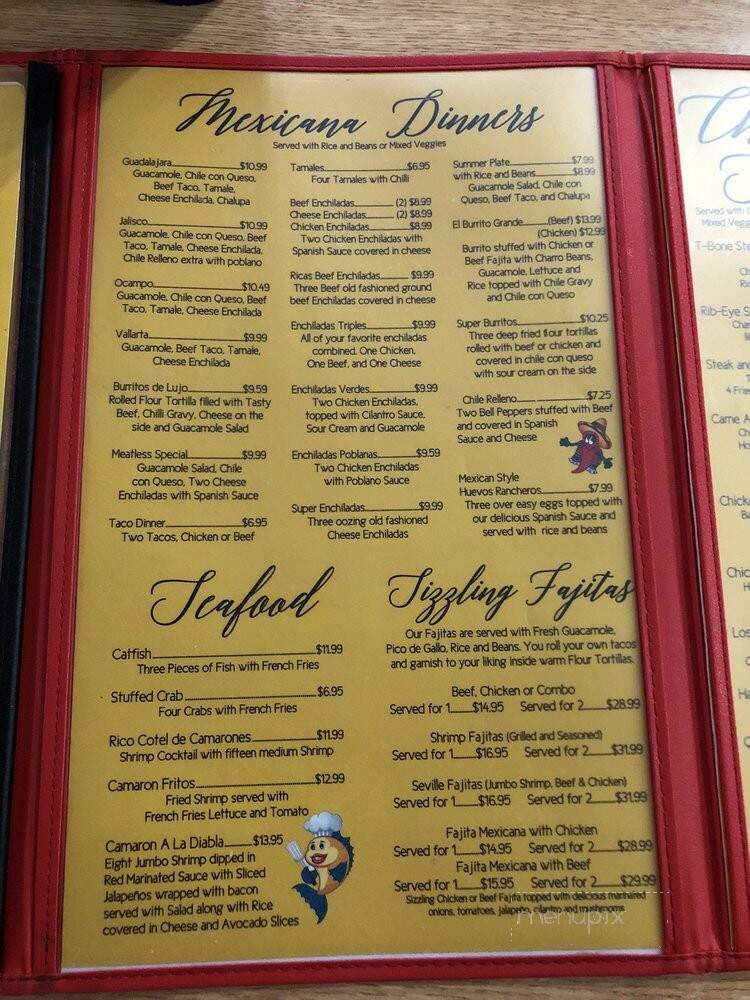 Mexicana Dinners
Served with Rice and Beans or Mixed Veggies
Guadalajara $10.99
Guacamole, Chile con Queso,
Beef Taco, Tamale,
Cheese Enchilada, Chalupa
Jalisco $10.99
Guacamole, Chile con Queso, Beef
Taco, Tamale, Cheese Enchilada,
Chile Relleno extra with poblano
Ocampo $10.49
Guacamole, Chile con Queso, Beef
Taco, Tamale, Cheese Enchilada
Vallarta $9.99
Guacamole, Beef Taco, Tamale,
Cheese Enchilada
Burritos de Lujo $9.59
Rolled Flour Tortilla filled with Tasty
Beef, Chilli Gravy, Cheese on the
side and Guacamole Salad
Meatless Special $9.99
Guacamole Salad, Chile
con Queso, Two Cheese
Enchiladas with Spanish Sauce
Taco Dinner $6.95
Two Tacos, Chicken or Beef
Tamales $6.95
Four Tamales with Chilli
Beef Enchiladas (2) $8.99
Cheese Enchiladas (2) $8.99
Chicken Enchiladas $8.99
Two Chicken Enchiladas with
Spanish Sauce covered in cheese
Ricas Beef Enchiladas $9.99
Three Beef old fashioned ground
beef Enchiladas covered in cheese
Enchiladas Triples $9.99
All of your favorite enchiladas
combined. One Chicken,
One Beef, and One Cheese
Enchiladas Verdes $9.99
Two Chicken Enchiladas,
topped with Cilantro Sauce,
Sour Cream and Guacamole
Enchiladas Poblanas $9.59
Two Chicken Enchiladas
with Poblano Sauce
Super Enchiladas $9.99
Three oozing old fashioned
Cheese Enchiladas
Summer Plate $7.99
with Rice and Beans $8.99
Guacamole Salad, Chile con
Queso, Beef Taco, and Chalupa
El Burrito Grande (Beef) $13.99
(Chicken) $12.99
Burrito stuffed with Chicken or
Beef Fajita with Charro Beans,
Guacamole, Lettuce and
Rice topped with Chile Gravy
and Chile con Queso
Super Burritos $10.25
Three deep fried flour tortillas
rolled with beef or chicken and
covered in chile con queso
with sour cream on the side
Chile Relleno $7.25
Two Bell Peppers stuffed with Beef
and covered in Spanish
Sauce and Cheese
Mexican Style
Huevos Rancheros $7.99
Three over easy eggs topped with
our delicious Spanish Sauce and
served with rice and beans
Seafood
Catfish $11.99
Three Pieces of Fish with French Fries
Stuffed Crab $6.95
Four Crabs with French Fries
Rico Cotel de Camarones $11.99
Shrimp Cocktail with fifteen medium Shrimp
Camaron Fritos $12.99
Fried Shrimp served with
French Fries Lettuce and Tomato
Camaron A La Diabla $13.95
Eight Jumbo Shrimp dipped in
Red Marinated Sauce with Sliced
Jalapeños wrapped with bacon
served with Salad along with Rice
covered in Cheese and Avocado Slices
Sizzling Fajitas
Our Fajitas are served with Fresh Guacamole,
Pico de Gallo, Rice and Beans. You roll your own tacos
and garnish to your liking inside warm Flour Tortillas.
Beef, Chicken or Combo
Served for 1 $14.95 Served for 2 $28.99
Shrimp Fajitas (Grilled and Seasoned)
Served for 1 $16.95 Served for 2 $31.99
Seville Fajitas (Jumbo Shrimp, Beef & Chicken)
Served for 1 $16.95 Served for 2 $31.99
Fajita Mexicana with Chicken
Served for 1 $14.95 Served for 2 $28.99
Fajita Mexicana with Beef
Served for 1 $15.95 Served for 2 $29.99
Sizzling Chicken or Beef Fajita topped with delicious marinated
onions, tomatoes, jalapeño, cilantro and mushrooms
menupix
T-Bone
Rib-Eye
Steak